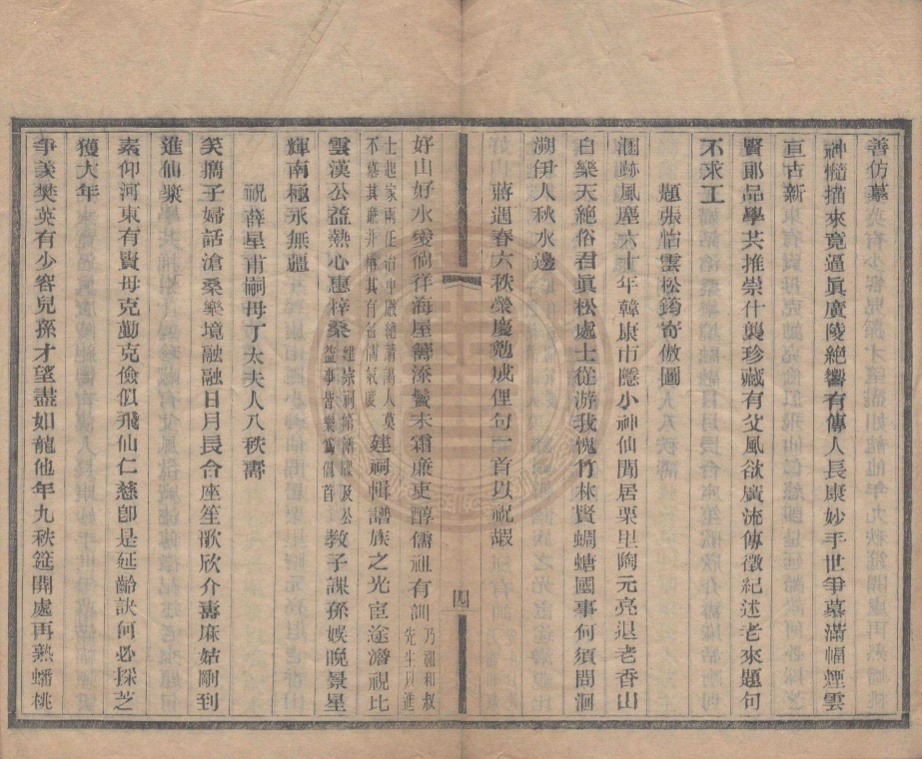 善仿摹
神髓描來竟逼眞廣陵絕響有傳人長康妙手世爭慕滿幅煙雲
亘古新
賢郎品學共推崇什襲珍藏有父風欲廣流傳徵紀述老來題句
不求工
題張怡雲松筠寄傲圖
溷跡風塵六十年韓康市隱小神仙閒居栗里陶元亮退老香山
白樂天絕俗君眞松處士從游我愧竹林賢蜩螗國事何須問洄
溯伊人秋水邊
蔣遇春六秩榮慶勉成俚句一首以祝嘏
好山好水愛徜徉海屋籌添鬢未霜廉吏醇儒祖有訓乃祖和叔先生以進
士起家兩任治中 人莫不慕其廉并 其有名儒氣度建祠輯譜族之光宦途澹視比
雲漢公益熱心惠梓桑建宗祠 及公益事皆樂爲倡首教子課孫娛晩景星
輝南極永無疆
祝薛星甫嗣母丁太夫人八秩壽
笑擕子婦話滄桑樂境融融日月長合座笙歌欣介壽麻姑剛到
進仙漿
素仰河東有賢母克勤克儉似飛仙仁慈卽是延齡訣何必採芝
獲大年
爭羨樊英有少容兒孫才望盡如龍他年九秩筵開處再熟蟠桃
四